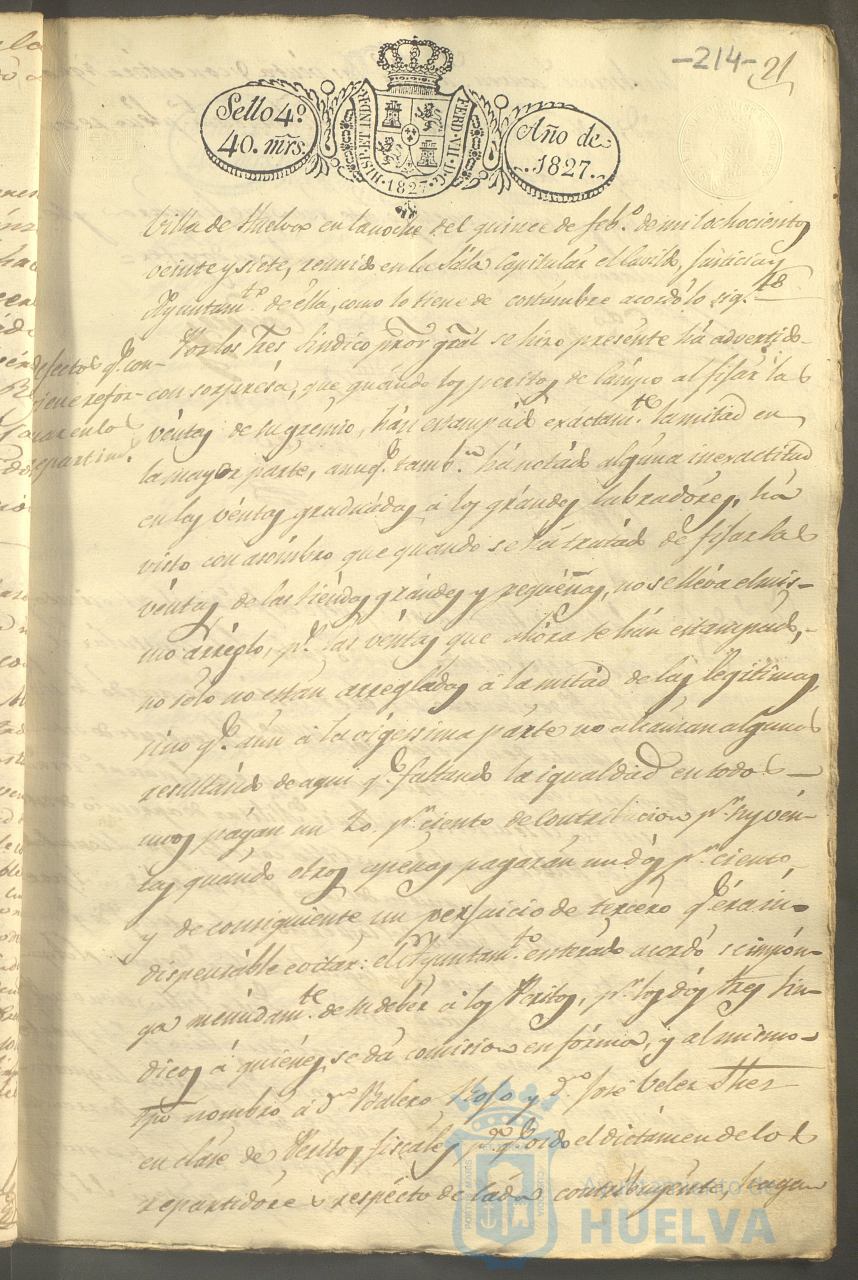 -214- 21
Sello 4º
40. mrs.
HISP. ET IND. R. 1827. FERD. VII. D. G.
Año de
1827.
Villa de Huelva en la noche del quince de febº. de mil ochocientos
veinte y siete, reunido en la Sala Capitular el Cavildo, Justicia y
Ayuntamto. de élla, como lo tiene de costumbre acordó lo sigte.
Por los Tres Sindico Pror. gral se hizo presente há advertido
defectos qe. con-
viene refor-
mar en los
repartims.
con sorpresa, que quándo los peritos de Cámpo al fijar las
véntas de su grémio, hán estampádo exáctamte. la mitad en
la mayor parte, aunqe. tambn. há notádo alguna inexactitud
en las véntas graduádas á los grándes labradóres, há
visto con asómbro que quando se há tratádo de fijar las
véntas de las tiendas grándes y pequéñas, no se lléva el mis-
mo arréglo, ps. las véntas que ahóra se hán estampádo,
no sólo no están arregládas á la mitad de las legítimas,
sino qe. aún á la vigessima párte no alcánzan algunos
resultándo de aqui qe. faltando la igualdad en todos
unos págan un 20 pr. ciento de Contribucion pr. sus vén-
tas quándo otros apénas pagarán un dós pr. ciento
y de consiguiente un perjuicio de tercéro qe. éra in-
dispensáble evitar: el Ayuntamto. enterádo acordó se impón-
ga menúdamte. de su debér á los Peritos, pr. los dós tres Sin-
dicos á quiénes se dá comision en fórma, y al mismo
tpo nombró á Dn. Balero Roso y Dn. José Velez
en cláse de Peritos fiscales pa. qe. oido el dictámen de los
repartidores respécto de cáda contribuyente, hagan
Ayuntamiento de
HUELVA